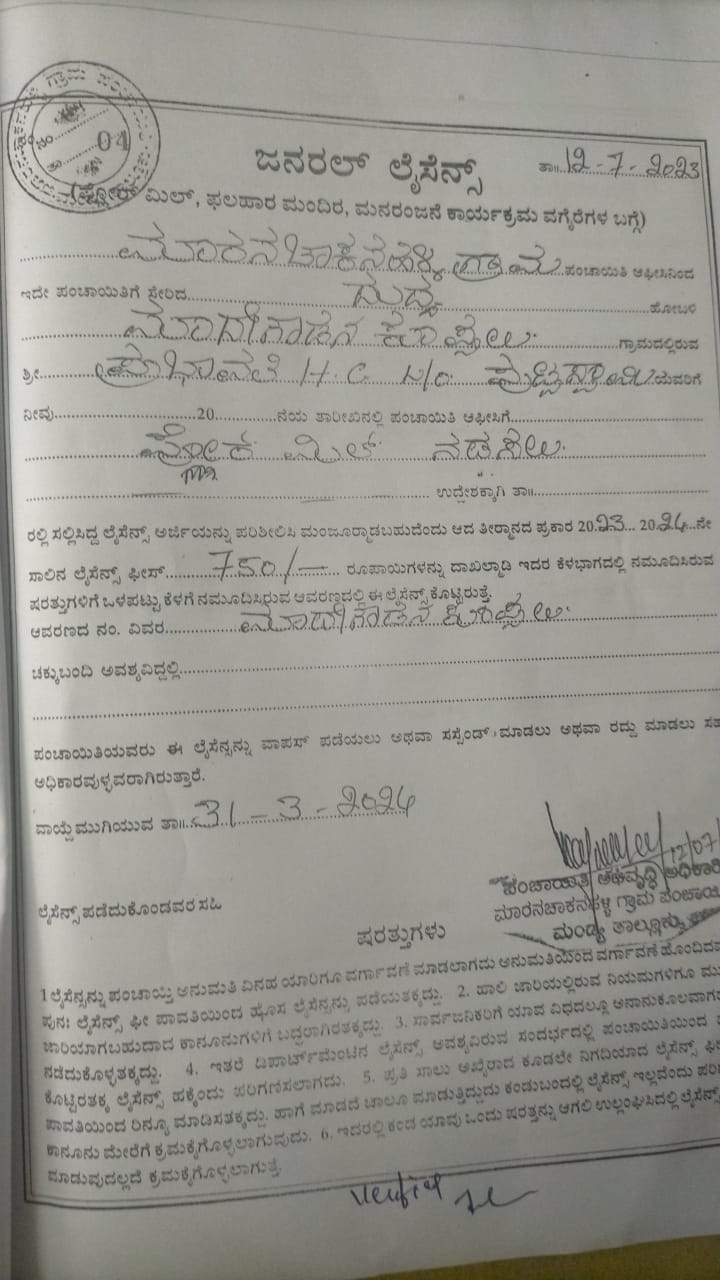 ಗ್ರಾಮ ಪಂಚಾಯಿತಿ
04
ಜನರಲ್ ಲೈಸೆನ್ಸ್
ತಾ॥ 12-7-2023
(ಫ್ಲೋರ್ ಮಿಲ್, ಫಲಹಾರ ಮಂದಿರ, ಮನರಂಜನೆ ಕಾರ್ಯಕ್ರಮ ವಗೈರೆಗಳ ಬಗ್ಗೆ)
ಮಾರನಚಾಕನಹಳ್ಳಿ ಗ್ರಾಮ ಪಂಚಾಯಿತಿ ಆಫೀಸಿನಿಂದ
ಇದೇ ಪಂಚಾಯಿತಿಗೆ ಸೇರಿದ ಹೋಬಳಿ
ಮಾದೇಗೌಡನ ಕೊಪ್ಪಲು ಗ್ರಾಮದಲ್ಲಿರುವ
ಶ್ರೀ H.C. W/o ಯವರಿಗೆ
ನೀವು 20 ನೆಯ ತಾರೀಖಿನಲ್ಲಿ ಪಂಚಾಯಿತಿ ಆಫೀಸಿಗೆ
ಮಿಲ್ ನಡಸಲು
ಉದ್ದೇಶಕ್ಕಾಗಿ ತಾ॥
ರಲ್ಲಿ ಸಲ್ಲಿಸಿದ್ದ ಲೈಸೆನ್ಸ್ ಅರ್ಜಿಯನ್ನು ಪರಿಶೀಲಿಸಿ ಮಂಜೂರ್ಮಾಡಬಹುದೆಂದು ಆದ ತೀರ್ಮಾನದ ಪ್ರಕಾರ 2023 2024 ನೇ
ಸಾಲಿನ ಲೈಸೆನ್ಸ್ ಫೀಸ್ 750/- ರೂಪಾಯಿಗಳನ್ನು ದಾಖಲ್ಮಾಡಿ ಇದರ ಕೆಳಭಾಗದಲ್ಲಿ ನಮೂದಿಸಿರುವ
ಷರತ್ತುಗಳಿಗೆ ಒಳಪಟ್ಟು ಕೆಳಗೆ ನಮೂದಿಸಿರುವ ಆವರಣದಲ್ಲಿ ಈ ಲೈಸೆನ್ಸ್ ಕೊಟ್ಟಿರುತ್ತೆ.
ಆವರಣದ ನಂ. ವಿವರ ಮಾದೇಗೌಡನ ಕೊಪ್ಪಲು
ಚಕ್ಕುಬಂದಿ ಅವಶ್ಯವಿದ್ದಲ್ಲಿ
ಪಂಚಾಯಿತಿಯವರು ಈ ಲೈಸೆನ್ಸನ್ನು ವಾಪಸ್ ಪಡೆಯಲು ಅಥವಾ ಸಸ್ಪೆಂಡ್ ಮಾಡಲು ಅಥವಾ ರದ್ದು ಮಾಡಲು
ಅಧಿಕಾರವುಳ್ಳವರಾಗಿರುತ್ತಾರೆ.
ವಾಯ್ದೆ ಮುಗಿಯುವ ತಾ॥ 31-3-2024
12/07/
ಪಂಚಾಯತಿ ಅಭಿವೃದ್ಧಿ ಅಧಿಕಾರಿ
ಲೈಸೆನ್ಸ್ ಪಡೆದುಕೊಂಡವರ ಸಹಿ
ಮಾರನಚಾಕನಹಳ್ಳಿ ಗ್ರಾಮ ಪಂಚಾಯಿ
ಷರತ್ತುಗಳು
ಮಂಡ್ಯ ತಾಲ್ಲೂಕು
1 ಲೈಸೆನ್ಸನ್ನು ಪಂಚಾಯ್ತಿ ಅನುಮತಿ ವಿನಹ ಯಾರಿಗೂ ವರ್ಗಾವಣೆ ಮಾಡಲಾಗದು ಅನುಮತಿಯಿಂದ ವರ್ಗಾವಣೆ ಹೊಂದಿದ
ಪುನಃ ಲೈಸೆನ್ಸ್ ಫೀ ಪಾವತಿಯಿಂದ ಹೊಸ ಲೈಸೆನ್ಸನ್ನು ಪಡೆಯತಕ್ಕದ್ದು. 2. ಹಾಲಿ ಜಾರಿಯಲ್ಲಿರುವ ನಿಯಮಗಳಿಗೂ
ಜಾರಿಯಾಗಬಹುದಾದ ಕಾನೂನುಗಳಿಗೆ ಬದ್ಧರಾಗಿರತಕ್ಕದ್ದು. 3. ಸಾರ್ವಜನಿಕರಿಗೆ ಯಾವ ವಿಧದಲ್ಲೂ ಅನಾನುಕೂಲವಾಗದ
ನಡೆದುಕೊಳ್ಳತಕ್ಕದ್ದು. 4. ಇತರೆ ಡಿಪಾರ್ಟ್‌ಮೆಂಟಿನ ಲೈಸೆನ್ಸ್ ಅವಶ್ಯವಿರುವ ಸಂದರ್ಭದಲ್ಲಿ ಪಂಚಾಯಿತಿಯಿಂದ
ಕೊಟ್ಟಿರತಕ್ಕ ಲೈಸೆನ್ಸ್ ಹಕ್ಕೆಂದು ಪರಿಗಣಿಸಲಾಗದು. 5. ಪ್ರತಿ ಸಾಲು ಅಖೈರಾದ ಕೂಡಲೇ ನಿಗದಿಯಾದ ಲೈಸೆನ್ಸ್ ಫೀ
ಪಾವತಿಯಿಂದ ರಿನ್ಯೂ ಮಾಡಿಸತಕ್ಕದ್ದು. ಹಾಗೆ ಮಾಡದೆ ಚಾಲೂ ಮಾಡುತ್ತಿದ್ದುದು ಕಂಡುಬಂದಲ್ಲಿ ಲೈಸೆನ್ಸ್ ಇಲ್ಲವೆಂದು
ಕಾನೂನು ಮೇರೆಗೆ ಕ್ರಮಕೈಗೊಳ್ಳಲಾಗುವುದು. 6. ಇದರಲ್ಲಿ ಕಂಡ ಯಾವು ಒಂದು ಷರತ್ತನ್ನು ಆಗಲಿ ಉಲ್ಲಂಘಿಸಿದಲ್ಲಿ ಲೈಸೆನ್ಸ್
ಮಾಡುವುದಲ್ಲದೆ ಕ್ರಮಕೈಗೊಳ್ಳಲಾಗುತ್ತೆ.